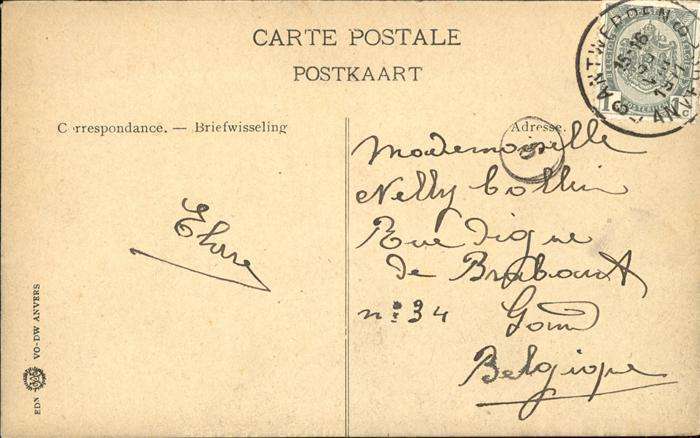 CARTE POSTALE
POSTKAART
Correspondance. — Briefwisseling
Adresse.
ANTWERPEN 6
15-16
ANVERS
1
5
Mademoiselle
Nelly Collin
Rue Digue
de Brabant
nº 34 Gand
Belgique
EDN VO-DW ANVERS